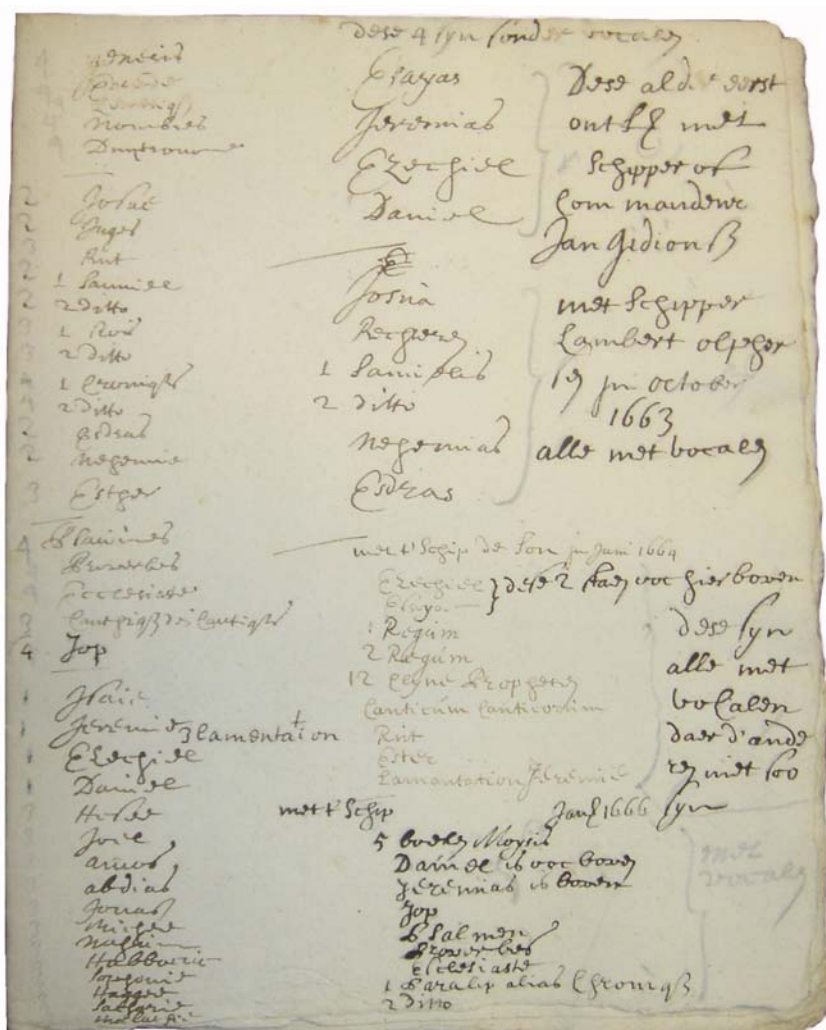 4 Genesis
4 Exode
4 Levitiqs
4 Nombres
4 Deutronome
2 Josue
2 Juges
3 Rut
2 1 Samuel
2 2 ditto
3 1 Rois
3 2 ditto
4 1 Croniqs
4 2 ditto
2 Esdras
2 Nehemie
3 Esther
4 Psaumes
Proverbes
Ecclesiaste
3 Canthiqs des Cantiqs
4 Jop
1 Isaie
1 Jeremie 3 lamentation
1 Ezechiel
1 Daniel
Hosee
Joel
amos
abdias
Jonas
Michee
Nahum
Habbacuc
Sophonie
Haggee
Sacharie
Malachie
dese 4 syn sonder vocalen
Esayas
Jeremias
Ezechiel
Daniel
Dese alder eerst
ontf met
Schipper of
Commandeur
Jan Gidionß
Josua
Rechteren
1 Samuelis
2 ditto
Nehemias
Esdras
met Schipper
Lambert
in october
1663
alle met vocalen
met t' Schip de Son in Juni 1664
Ezechiel } dese 2 staen ooc hierboven
Esayas
1 Regum
2 Regum
12 Clyne Propheten
Canticum Canticorum
Rut
Ester
Lamantation Jeremie
dese syn
alle met
vocalen
daer d'ande
ren niet soo
syn
met t' Schip
Jan 1666
5 boeken Moysis
Daniel is ooc boven
Jeremias is boven
Jop
Psalmen
Proverbes
Ecclesiaste
1 Paralip alias Chroniqß
2 ditto
met
vocalen